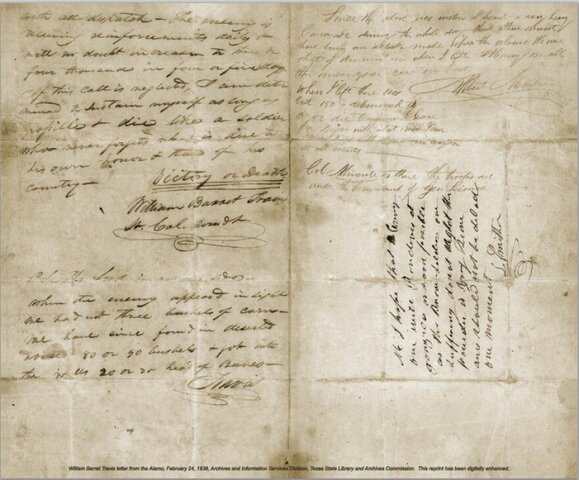 with all dispatch — The enemy is
receiving reinforcements daily &
will no doubt increase to three or
four thousand in four or five days.
If this call is neglected, I am deter
mined to sustain myself as long as
possible & die like a soldier
who never forgets what is due to
his own honor & that of his
country —
Victory or Death
William Barret Travis
Lt. Col. comdt
P.S. The Lord is on our side —
When the enemy appeared in sight
we had not three bushels of corn —
We have since found in deserted
houses 80 or 90 bushels & got into
the walls 20 or 30 head of Beeves —
Travis
Since the above was written I heard a very heavy
Canonade during the whole day think there must
have been an attack made upon the alamo We were
short of Ammunition when I left Hurry on all
the men you can
When I left there was
but 150 determined to
do or die
Col Almonte is there the troops are
under the Command of Gen
N I hope that
one will
as the
suffering
powder is very scarce
and should not be delayed
one moment
L Smither
William Barret Travis letter from the Alamo, February 24, 1836, Archives and Information Services Division, Texas State Library and Archives Commission. This reprint has been digitally enhanced.